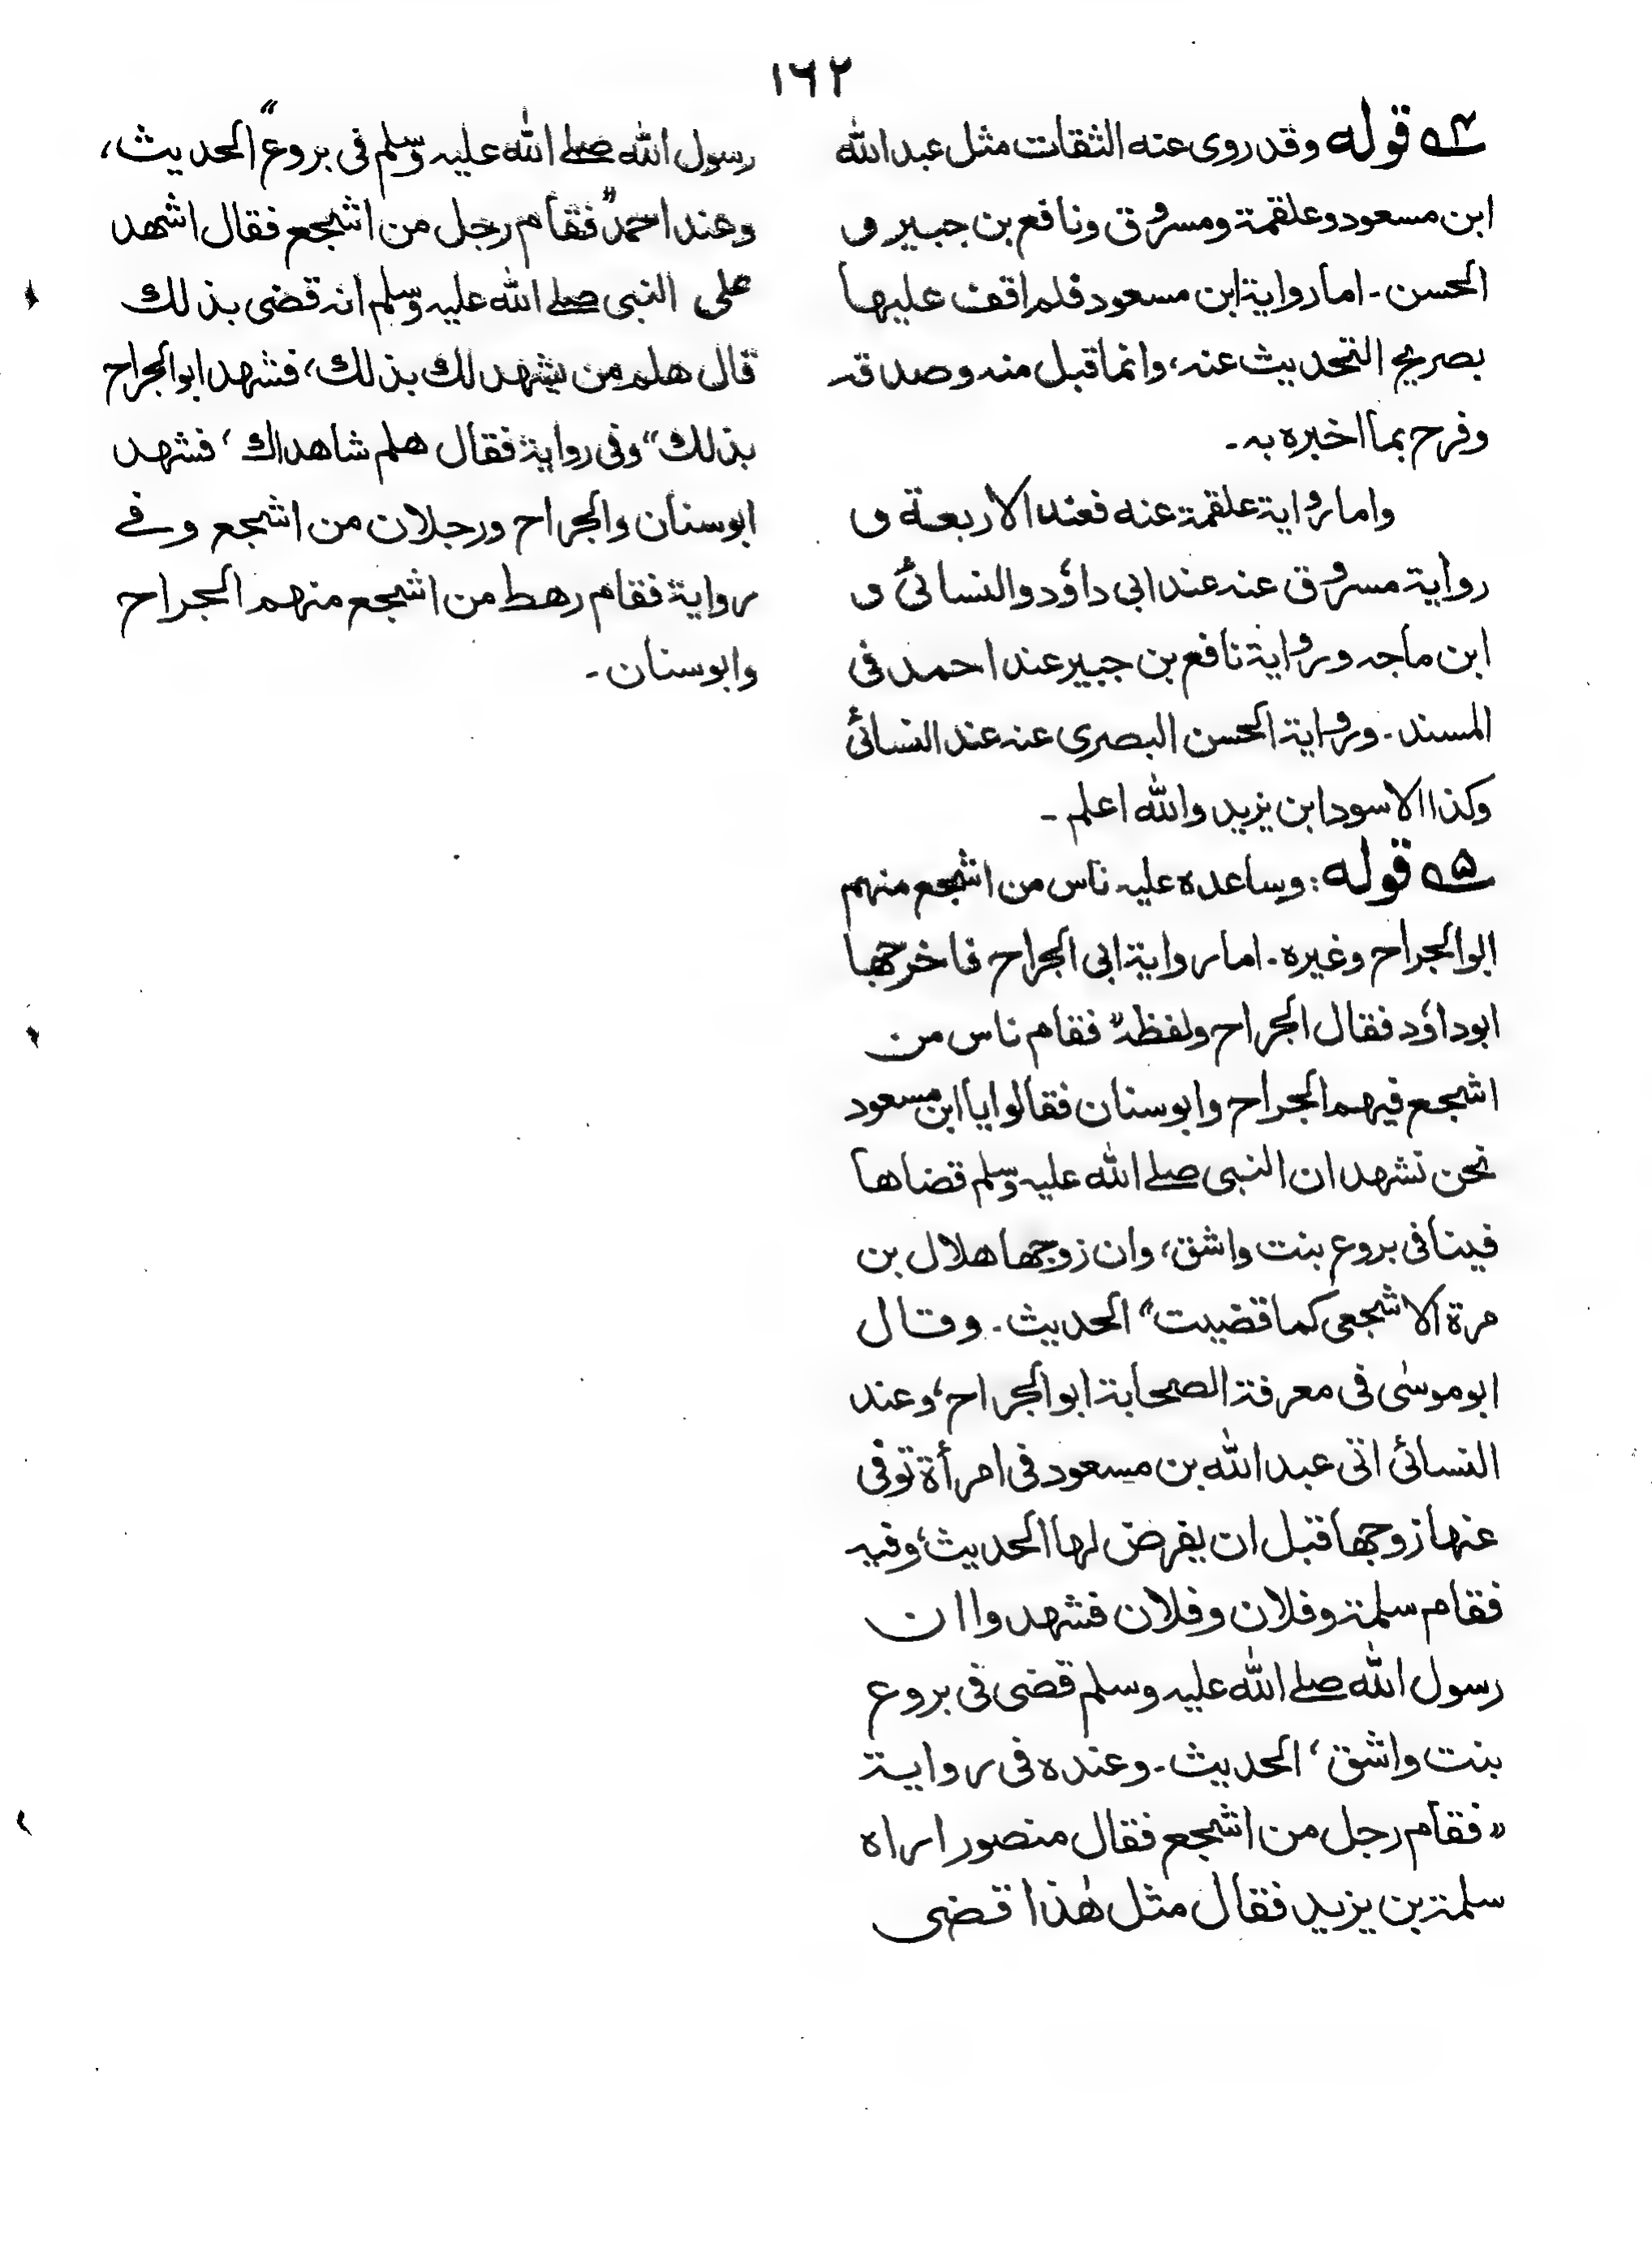 ١٦٢
٤ه قوله وقد روى عنه الثقات مثل عبد الله
ابن مسعود وعلقمة ومسروق ونافع بن جبير و
الحسن۔ اما رواية ابن مسعود فلم اقف عليها
بصريح التحديث عنه، وانما قبل منه وصدقه
وفرح بما اخبره به۔
واما رواية علقمة عنه فعند الاربعة و
رواية مسروق عنه عند ابى داؤد والنسائى و
ابن ماجه ورواية نافع بن جبير عند احمد فى
المسند۔ ورواية الحسن البصرى عنه عند النسائى
وكذا الاسود ابن يزيد والله اعلم۔
۵ه قوله: وساعده عليه ناس من اشجع منهم
ابو الجراح وغيره۔ اما رواية ابى الجراح فاخرجها
ابو داؤد فقال الجراح ولفظه "فقام ناس من
اشجع فيهم الجراح وابو سنان فقالوا يا ابن مسعود
نحن نشهد ان النبى صلے الله عليه وسلم قضاها
فينا فى بروع بنت واشق، وان زوجها هلال بن
مرة الاشجعى كما قضيت" الحديث۔ وقال
ابو موسٰى فى معرفة الصحابة ابو الجراح، وعند
النسائى اتى عبد الله بن مسعود فى امرأة توفى
عنها زوجها قبل ان يفرض لها الحديث، وفيه
فقام سلمة وفلان وفلان فشهدوا ان
رسول الله صلے الله عليه وسلم قضى فى بروع
بنت واشق، الحديث۔ وعنده فى رواية
"فقام رجل من اشجع فقال منصور اراه
سلمة بن يزيد فقال مثل هٰذا قضى
رسول الله صلے الله عليه وسلم فى بروع" الحديث،
وعند احمد "فقام رجل من اشجع فقال اشهد
على النبى صلے الله عليه وسلم انه قضى بذلك
قال هلم من يشهد لك بذلك، فشهد ابو الجراح
بذلك" وفى رواية فقال هلم شاهداك، فشهد
ابو سنان والجراح ورجلان من اشجع وفے
رواية فقام رهط من اشجع منهم الجراح
وابو سنان۔